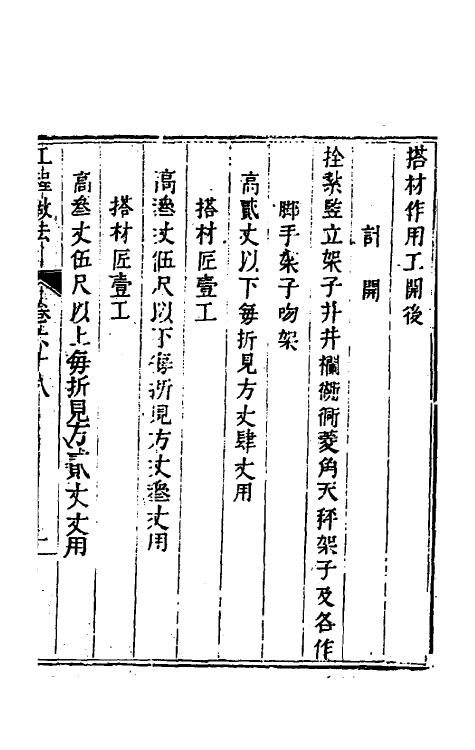 搭材作用工開後
計開
拴紥竪立架子井井欄衚衕菱角天秤架子及各作
脚手架子吻架
高貳丈以下每折見方丈肆丈用
搭材匠壹工
高叄丈伍尺以下每折見方丈叄丈用
搭材匠壹工
高叄丈伍尺以上每折見方貳丈丈用
工程做法